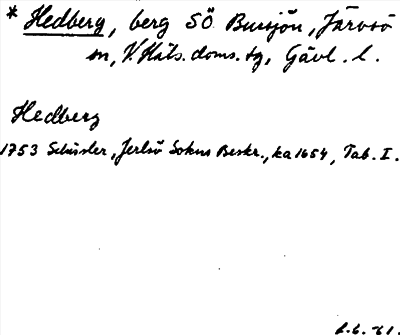 * Hedberg, berg SÖ Bursjön, Järvsö
sn, V. Häls. doms. tg, Gävl. l.
Hedberg
1753 Schissler, Jerlsö Sokns Beskr., ka 1654, Tab. I.